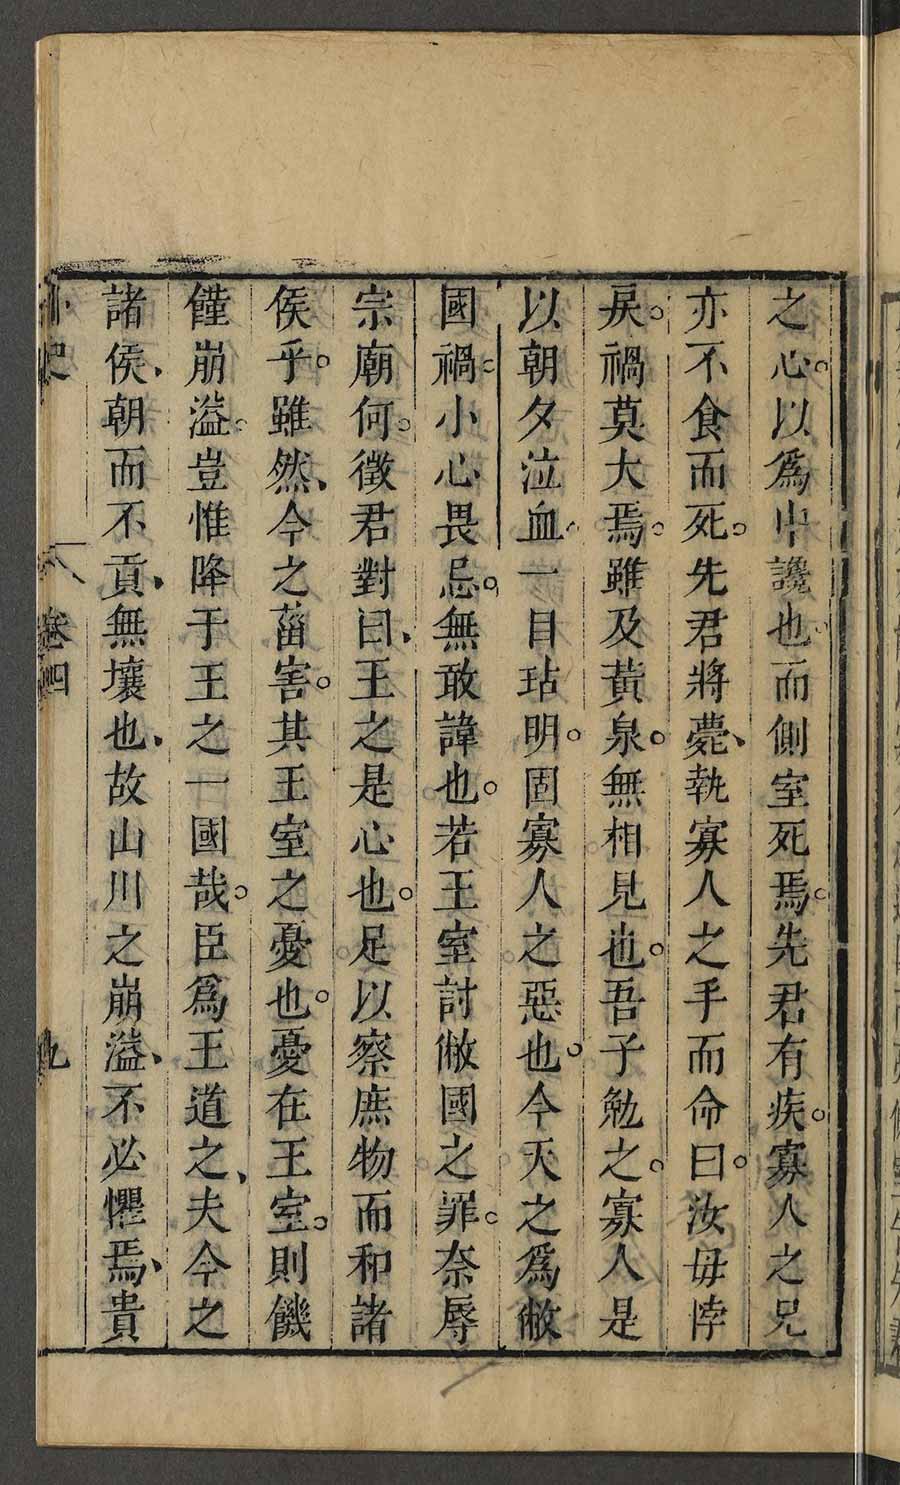 之心。以爲中讒也而側室死焉。先君有疾。寡人之兄
亦不食而死。先君將薨、執寡人之手而命曰。汝毋悖
戾。禍莫大焉。雖及黃泉。無相見也。吾子勉之。寡人是
以朝夕泣血、一目玷明。固寡人之惡也。今天之爲敝
國禍。小心畏忌。無敢諱也。若王室討敝國之罪。奈辱
宗廟何。徵君對曰、王之是心也。足以察庶物而和諸
侯乎。雖然、今之菑害。其王室之憂也。憂在王室。則饑
饉崩溢。豈惟降于王之一國哉。臣爲王道之、夫今之
諸侯、朝而不貢、無壤也、故山川之崩溢、不必懼焉、貴
外史 卷四 九